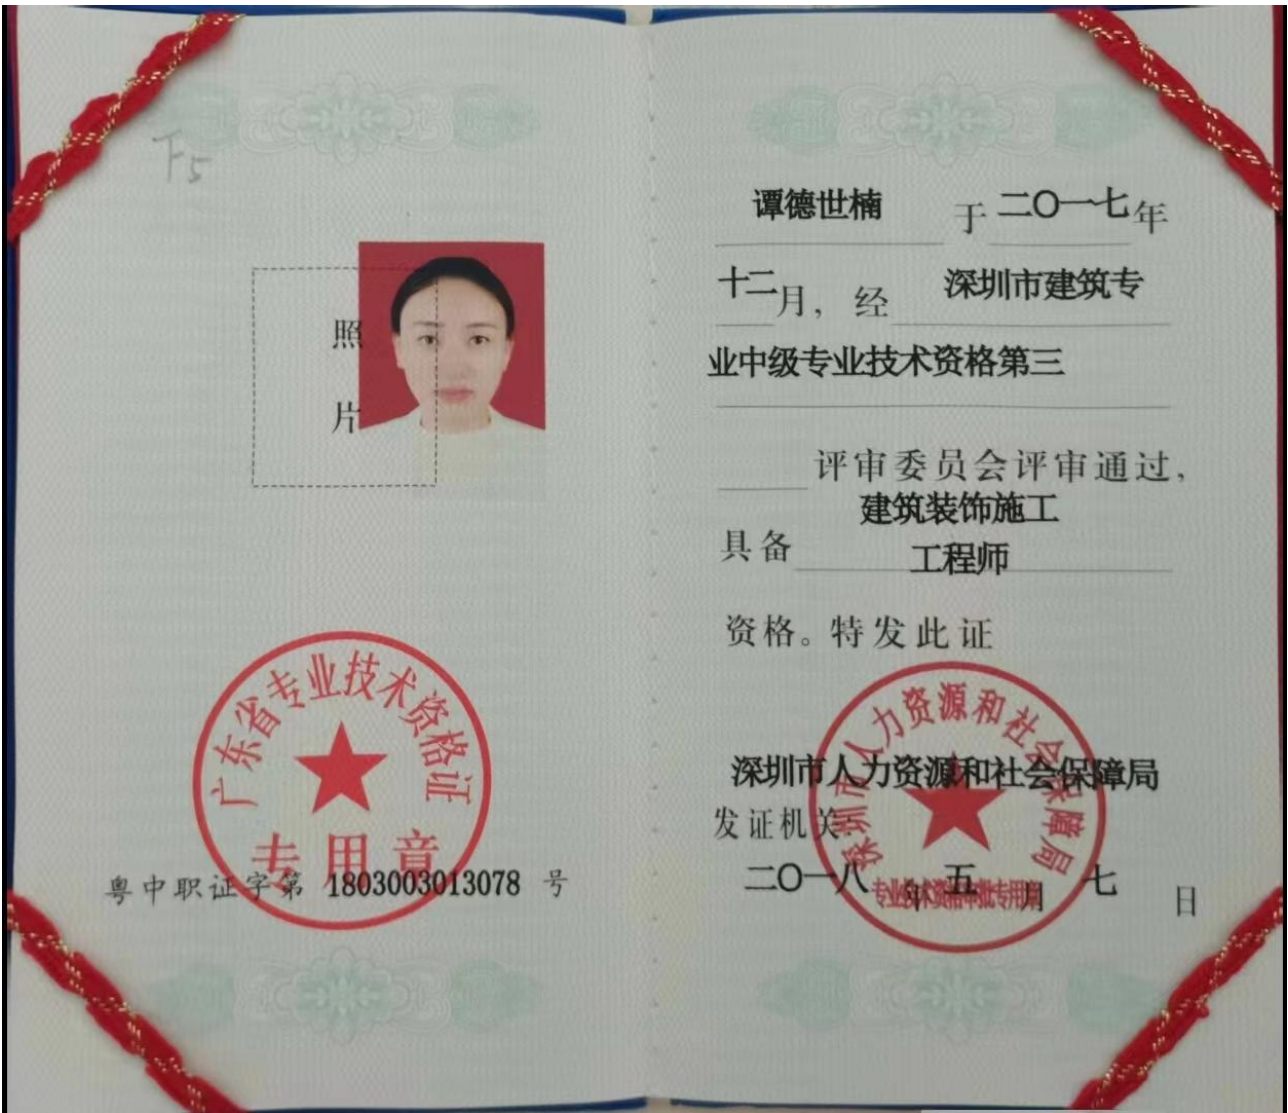 下5
照
片
广东省专业技术资格证
专用章
粤中职证字第 1803003013078 号
谭德世楠 于 二〇一七 年
十二 月，经 深圳市建筑专
业中级专业技术资格第三
评审委员会评审通过，
建筑装饰施工
具备 工程师
资格。特发此证
深圳市人力资源和社会保障局
深圳市人力资源和社会保障局
发证机关
二〇一八 年 五 月 七 日